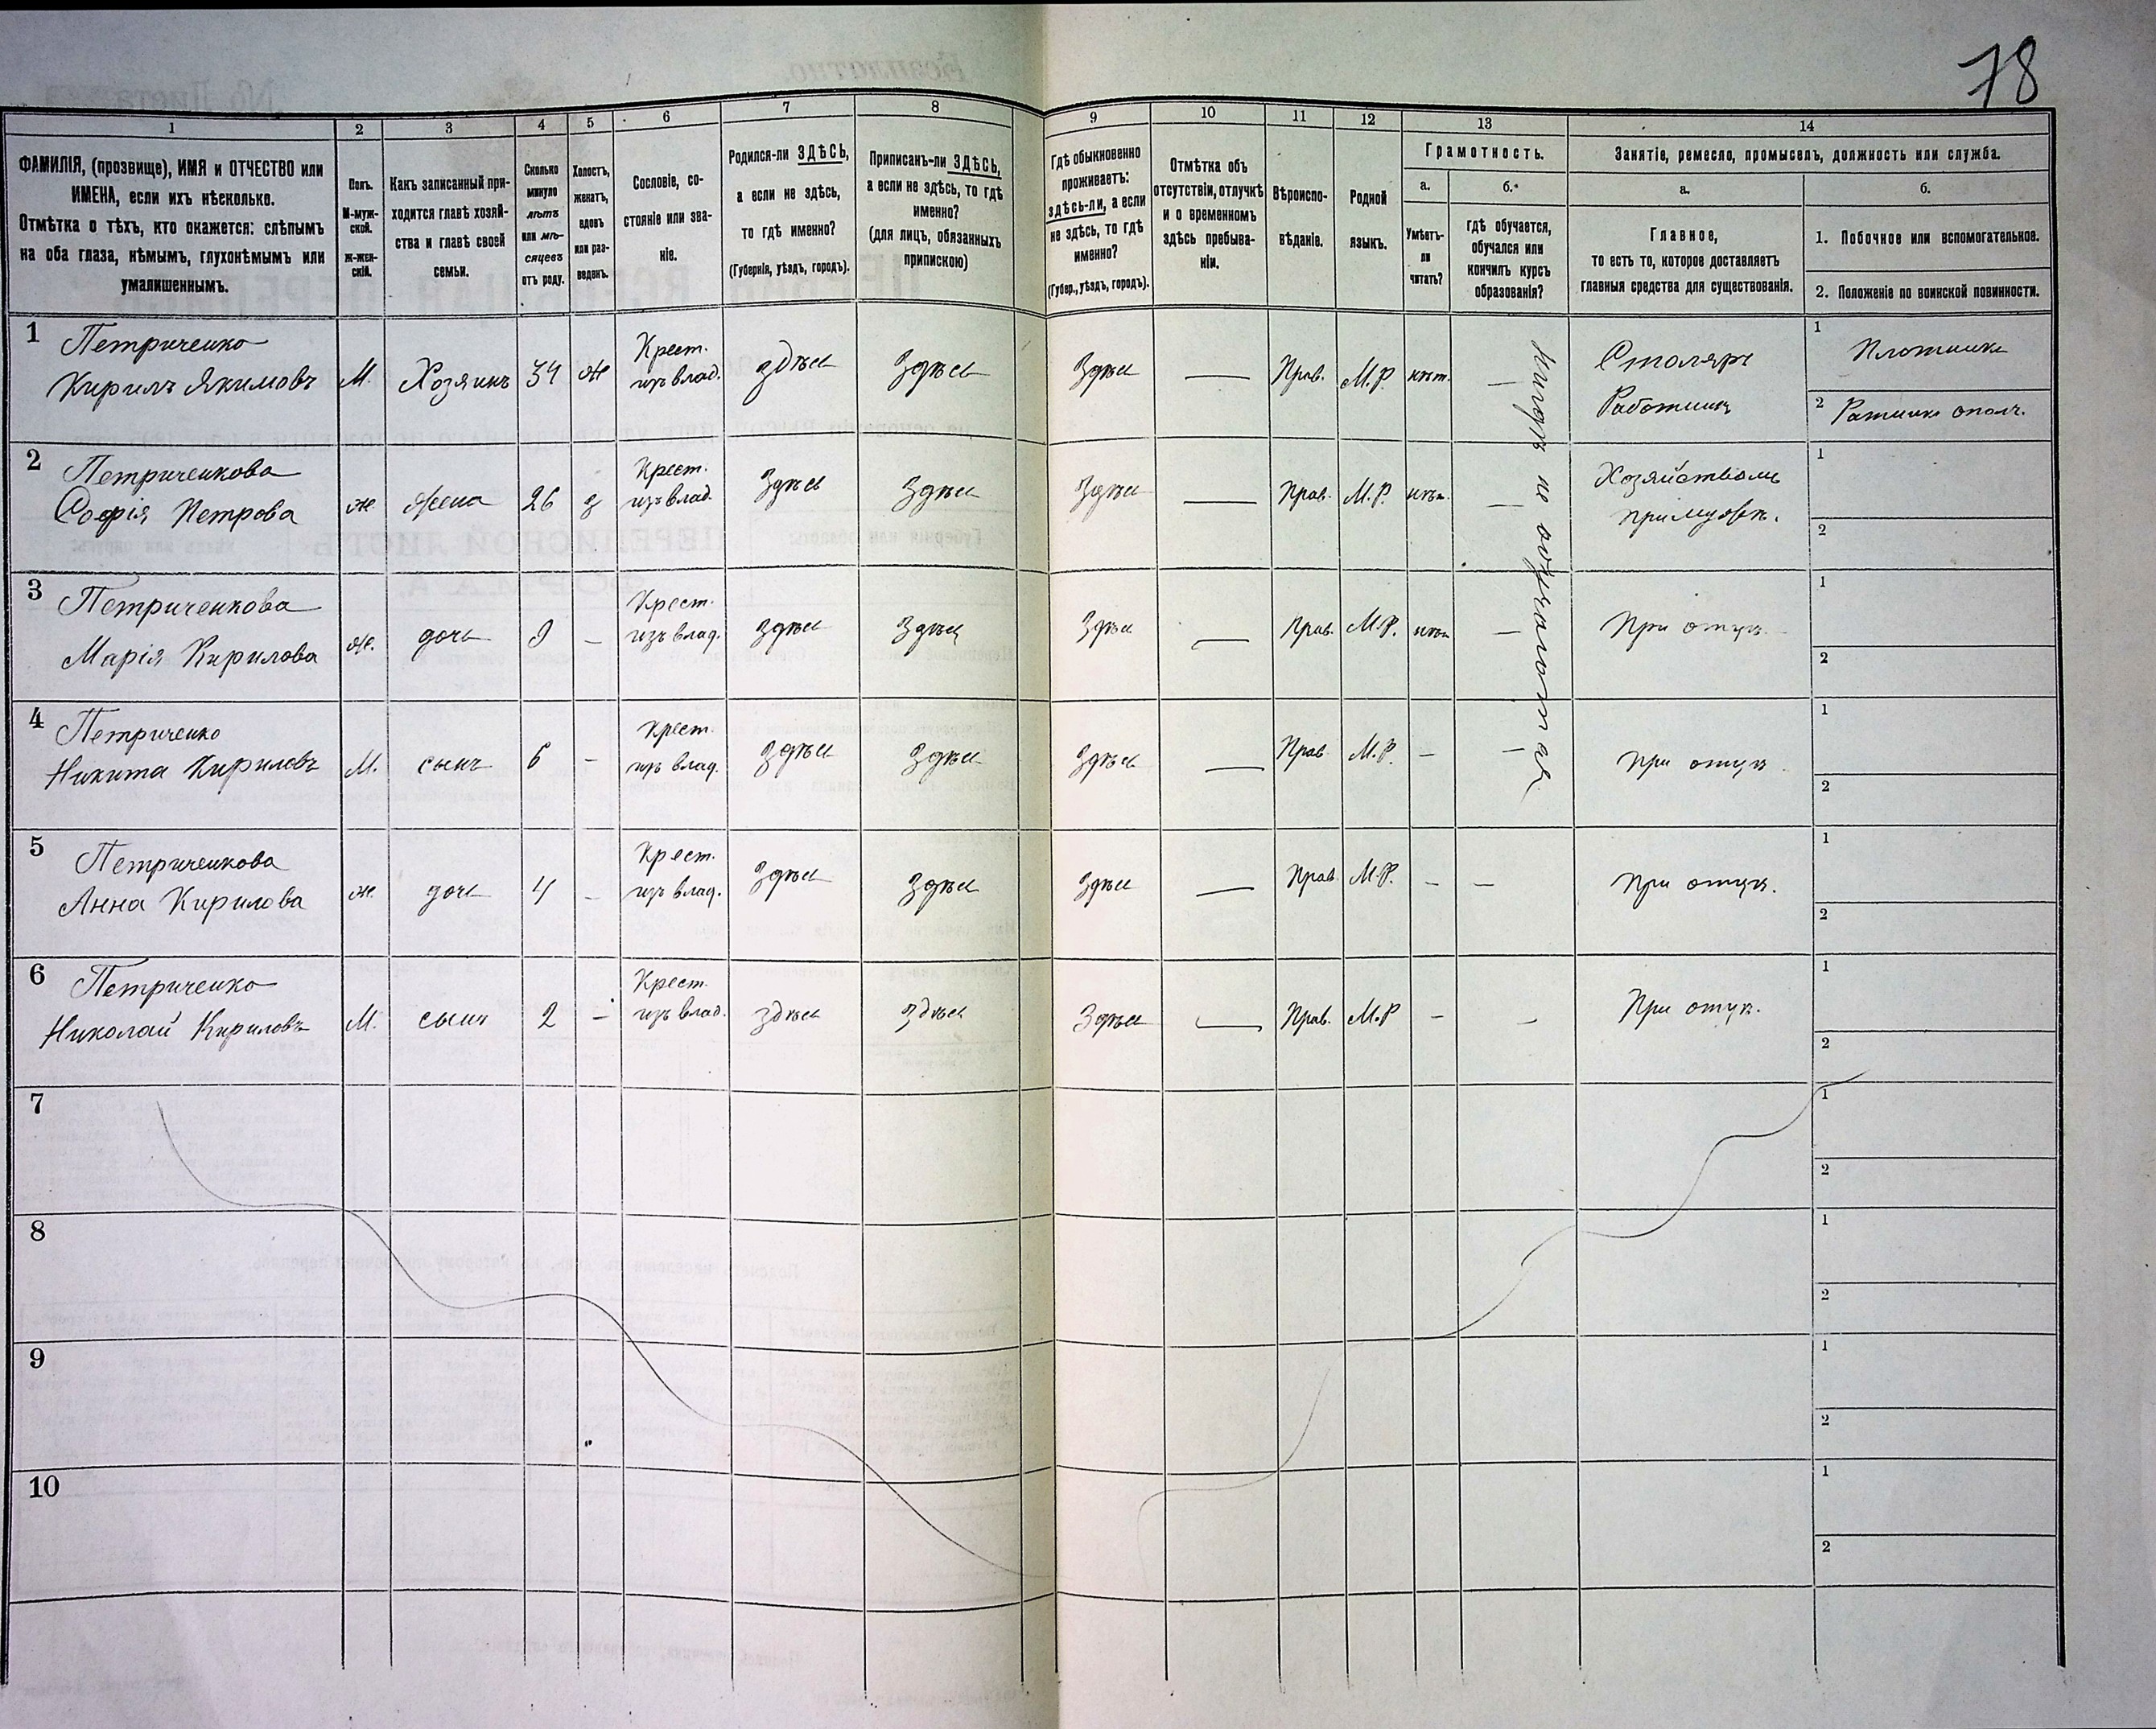 78
1
2
3
4
5
6
7
8
9
10
11
12
13
14
ФАМИЛІЯ, (прозвище), ИМЯ и ОТЧЕСТВО или
ИМЕНА, если ихъ нѣсколько.
Отмѣтка о тѣхъ, кто окажется: слѣпымъ
на оба глаза, нѣмымъ, глухонѣмымъ или
умалишеннымъ.
Полъ.
М-муж-
ской.
Ж-жен-
скій.
Какъ записанный при-
ходится главѣ хозяй-
ства и главѣ своей
семьи.
Сколько
минуло
лѣтъ
или мѣ-
сяцевъ
отъ роду.
Холостъ,
женатъ,
вдовъ
или раз-
веденъ.
Сословіе, со-
стояніе или зва-
ніе.
Родился-ли ЗДѢСЬ,
а если не здѣсь,
то гдѣ именно?
(Губернія, уѣздъ, городъ).
Приписанъ-ли ЗДѢСЬ,
а если не здѣсь, то гдѣ
именно?
(для лицъ, обязанныхъ
припискою)
Гдѣ обыкновенно
проживаетъ:
здѣсь-ли, а если
не здѣсь, то гдѣ
именно?
(Губер., уѣздъ, городъ).
Отмѣтка объ
отсутствіи, отлучкѣ
и о временномъ
здѣсь пребыва-
ніи.
Вѣроиспо-
вѣданіе.
Родной
языкъ.
Грамотность.
а.
Умѣетъ-
ли
читать?
б.
гдѣ обучается,
обучался или
кончилъ курсъ
образованія?
Занятіе, ремесло, промыселъ, должность или служба.
а.
Главное,
то есть то, которое доставляетъ
главныя средства для существованія.
б.
1. Побочное или вспомогательное.
2. Положеніе по воинской повинности.
1 Петриченко
Кирилъ Якимовъ М. Хозяинъ 34 ж Крест.
изъ влад. здѣсь Здѣсь Здѣсь — Прав. М.Р. нѣт. — Столяръ
Работникъ
1 Плотникъ
2 Ратникъ ополч.
нигдѣ не обучались
2 Петриченкова
Софія Петрова ж. жена 26 з Крест.
изъ влад. Здѣсь Здѣсь Здѣсь — Прав. М.Р. нѣт. — Хозяйством
при мужѣ.
1
2
3 Петриченкова
Марія Кирилова ж. дочь 9 – Крест.
изъ влад. Здѣсь Здѣсь Здѣсь — Прав. М.Р. нѣт — При отцѣ
1
2
4 Петриченко
Никита Кириловъ М. сынъ 6 – Крест.
изъ влад. Здѣсь Здѣсь Здѣсь — Прав. М.Р. – – При отцѣ
1
2
5 Петриченкова
Анна Кирилова ж. дочь 4 – Крест.
изъ влад. Здѣсь Здѣсь Здѣсь — Прав. М.Р. – – При отцѣ.
1
2
6 Петриченко
Николай Кириловъ М. сынъ 2 – Крест.
изъ влад. здѣсь здѣсь Здѣсь — Прав. М.Р – – При отцѣ.
1
2
7
1
2
8
1
2
9
1
2
10
1
2